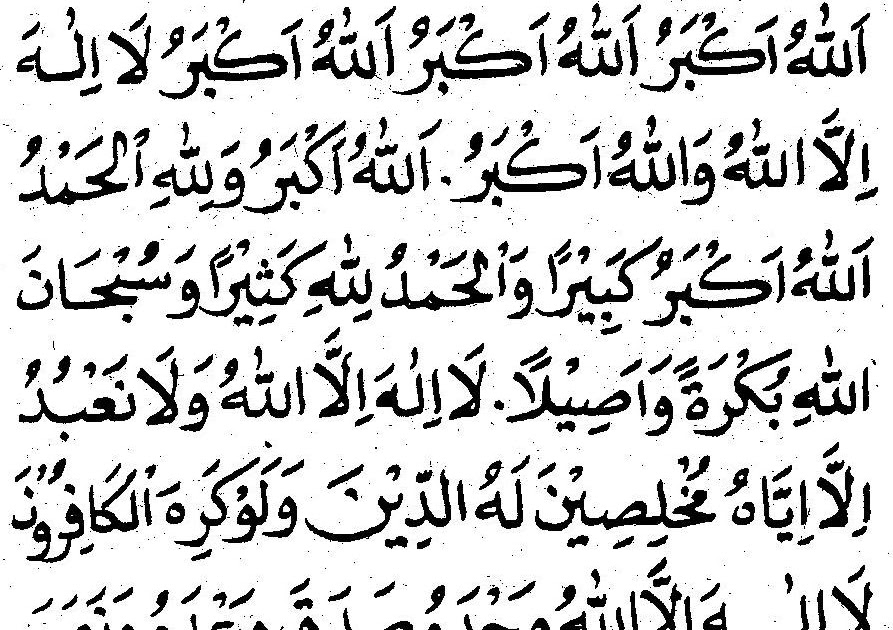 اَللّٰهُ اَكْبَرُ اَللّٰهُ اَكْبَرُ اَللّٰهُ اَكْبَرُ لَا اِلٰهَ
اِلَّا اللّٰهُ وَاللّٰهُ اَكْبَرُ. اَللّٰهُ اَكْبَرُ وَلِلّٰهِ الْحَمْدُ
اَللّٰهُ اَكْبَرُ كَبِيْرًا وَالْحَمْدُ لِلّٰهِ كَثِيْرًا وَسُبْحَانَ
اللّٰهِ بُكْرَةً وَاَصِيْلًا. لَا اِلٰهَ اِلَّا اللّٰهُ وَلَا نَعْبُدُ
اِلَّا اِيَّاهُ مُخْلِصِيْنَ لَهُ الدِّيْنَ وَلَوْ كَرِهَ الْكَافِرُوْنَ
لَا اِلٰهَ اِلَّا اللّٰهُ وَحْدَهُ صَدَقَ وَعْدَهُ وَنَصَرَ